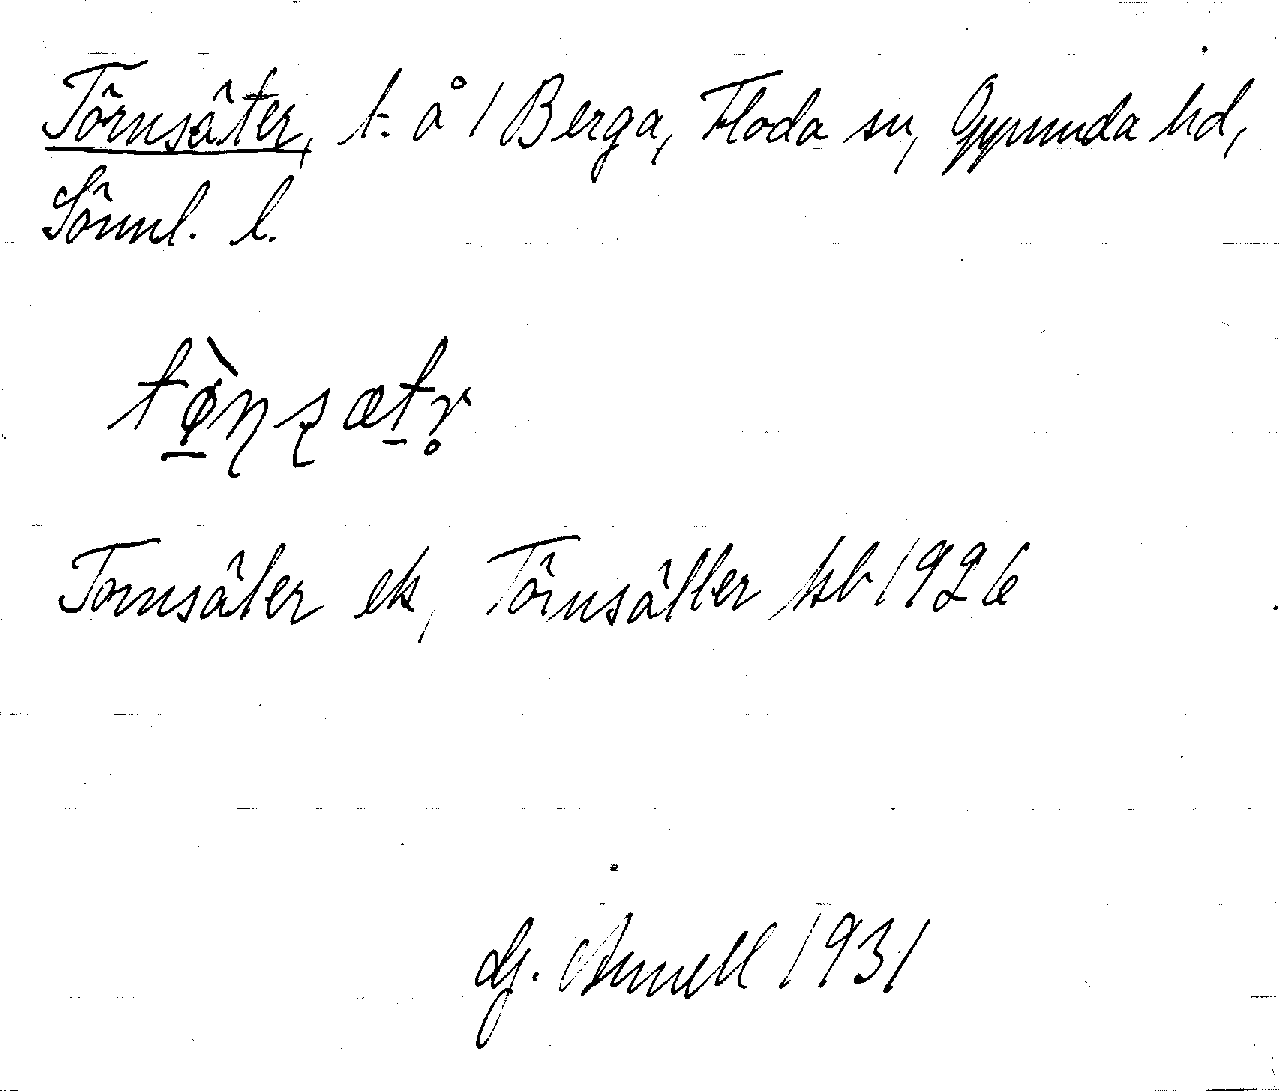 Törnsäter, t. å 1 Berga, Floda sn, Oppunda hd,
Sörml. l.
tø̠̀ɳʂæt̠r̥
Tornsäter ek, Törnsätter kb 1926
G. Annell 1931